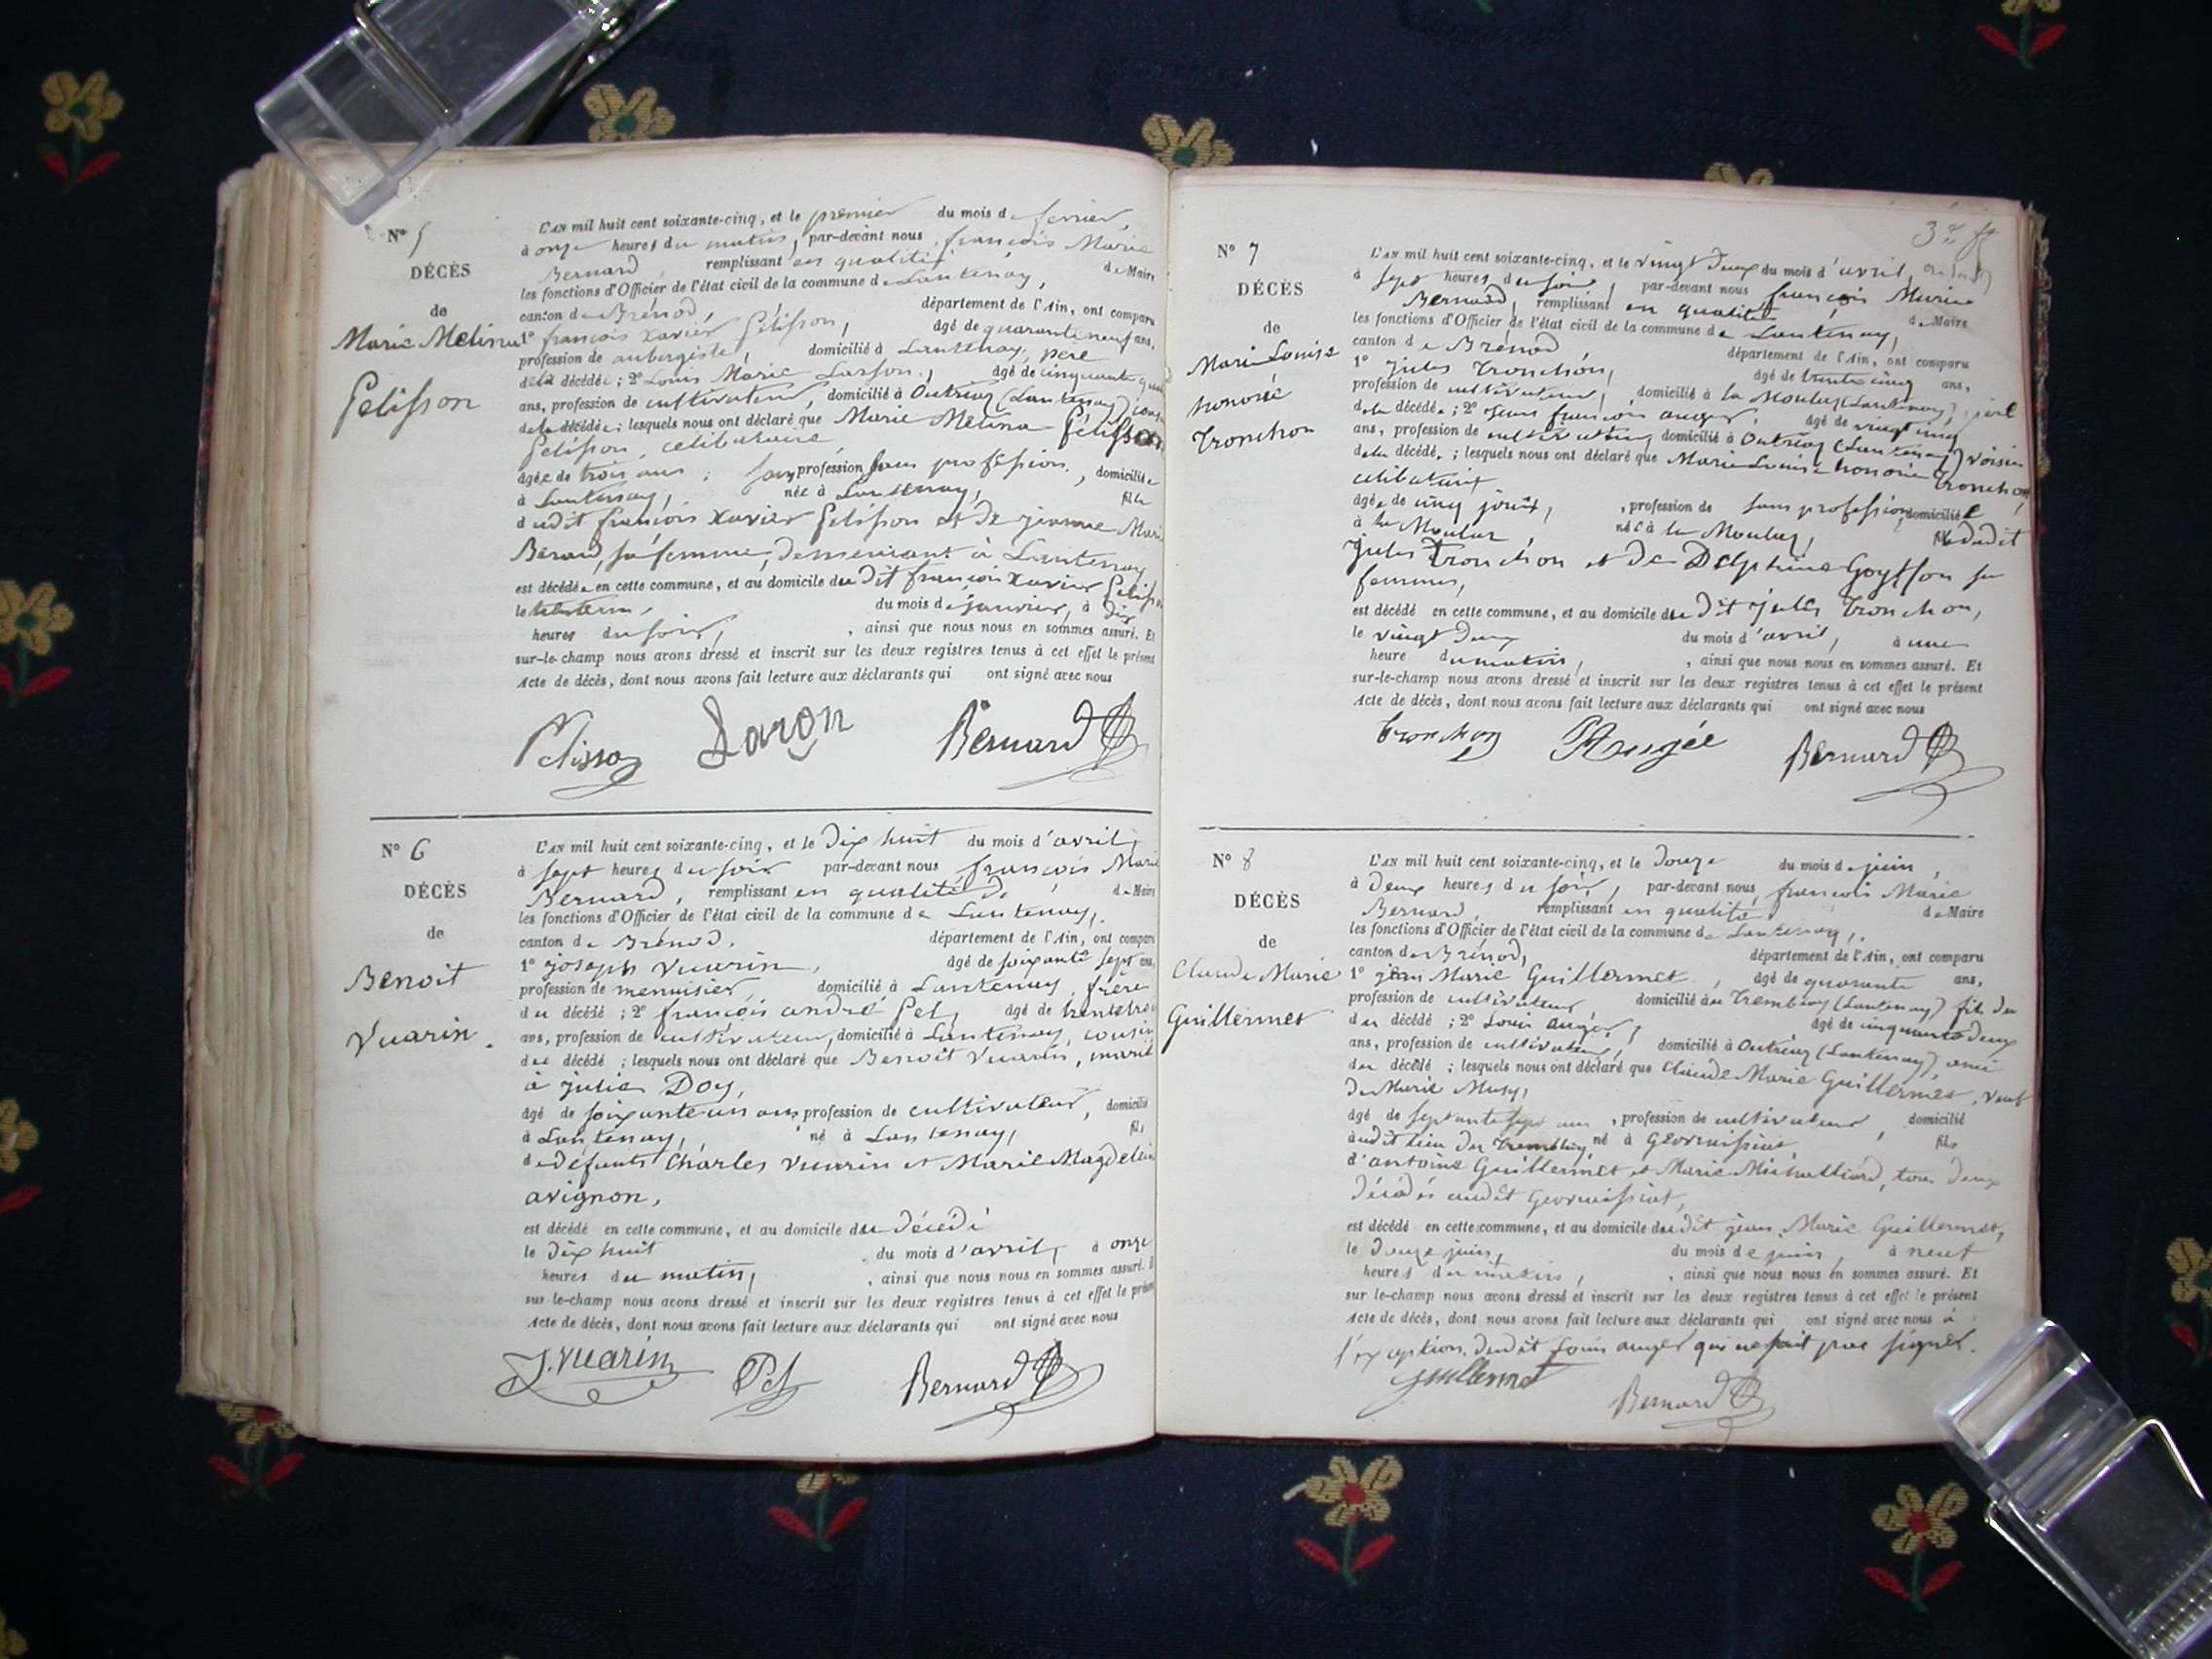 N° 5
DÉCÈS
de
Marie Melina
Pélisson
L'AN mil huit cent soixante-cinq, et le premier du mois de fevrier,
à onze heures du matin, par-devant nous françois Marie
Bernard, remplissant en qualité de Maire
les fonctions d'Officier de l'état civil de la commune de Lantenay,
canton de Brénod, département de l'Ain, ont comparu
1° françois Xavier Pélisson, âgé de quarante neuf ans,
profession de aubergiste, domicilié à Lantenay, père
de la décédée; 2° Louis Marie, âgé de cinquante
ans, profession de cultivateur, domicilié à Outriaz (Lantenay),
de la décédée; lesquels nous ont déclaré que Marie Mélina Pélisson
Pelisson, célibataire
âgée de trois ans; profession sans profession, domiciliée
à Lantenay, née à Lantenay, fille
dudit françois Xavier Pélisson et de jeanne Marie
Berard, sa femme, demeurant à Lantenay
est décédée en cette commune, et au domicile du dit françois Xavier Pelisson
le du mois de janvier, à dix
heures du soir, ainsi que nous nous en sommes assuré. Et
sur-le-champ nous avons dressé et inscrit sur les deux registres tenus à cet effet le présent
Acte de décès, dont nous avons fait lecture aux déclarants qui ont signé avec nous
Pelisson Bernard
N° 6
DÉCÈS
de
Benoit
Vuarin.
L'AN mil huit cent soixante-cinq, et le dix huit du mois d'avril,
à sept heures du soir par-devant nous françois Marie
Bernard, remplissant en qualité de de Maire
les fonctions d'Officier de l'état civil de la commune de Lantenay,
canton de Brénod, département de l'Ain, ont comparu
1° joseph Vuarin, âgé de soixante sept ans,
profession de menuisier, domicilié à Lantenay, frère
du décédé; 2° françois andré Pel, âgé de trente
ans, profession de cultivateur, domicilié à Lantenay, cousin
du décédé; lesquels nous ont déclaré que Benoit Vuarin, marié
à julie Doy,
âgé de soixante un ans, profession de cultivateur, domicilié
à Lantenay, né à Lantenay, fils
de défunts Charles Vuarin et Marie Magdeleine
avignon,
est décédé en cette commune, et au domicile du décédé
le dix huit du mois d'avril, à onze
heures du matin, ainsi que nous nous en sommes assuré. Et
sur-le-champ nous avons dressé et inscrit sur les deux registres tenus à cet effet le présent
Acte de décès, dont nous avons fait lecture aux déclarants qui ont signé avec nous
J. Vuarin Pel Bernard
3e
N° 7
DÉCÈS
de
Marie Louise
honorie
Tronchon
L'AN mil huit cent soixante-cinq, et le vingt deux du mois d'avril,
à sept heures du soir, par-devant nous françois Marie
Bernard, remplissant en qualité de Maire
les fonctions d'Officier de l'état civil de la commune de Lantenay,
canton de Brénod, département de l'Ain, ont comparu
1° jules Tronchon, âgé de trente cinq ans,
profession de cultivateur, domicilié à la Moulaz (Lantenay), père
de la décédée; 2° jean françois auger, âgé de vingt cinq
ans, profession de cultivateur, domicilié à Outriaz (Lantenay) voisin
de la décédée; lesquels nous ont déclaré que Marie Louise honorie Tronchon,
célibataire
âgée de cinq jours, profession de sans profession, domiciliée
à la Moulaz, née à la Moulaz, fille dudit
jules Tronchon et de Delphine Goyffon sa
femme,
est décédé en cette commune, et au domicile du dit jules Tronchon,
le vingt deux du mois d'avril, à une
heure du matin, ainsi que nous nous en sommes assuré. Et
sur-le-champ nous avons dressé et inscrit sur les deux registres tenus à cet effet le présent
Acte de décès, dont nous avons fait lecture aux déclarants qui ont signé avec nous
Tronchon Augée Bernard
N° 8
DÉCÈS
de
Claude Marie
Guillermet
L'AN mil huit cent soixante-cinq, et le douze du mois de juin,
à deux heures du soir, par-devant nous, françois Marie
Bernard, remplissant en qualité de Maire
les fonctions d'Officier de l'état civil de la commune de Lantenay,
canton de Brénod, département de l'Ain, ont comparu
1° jean Marie Guillermet, âgé de quarante ans,
profession de cultivateur domicilié au Tremblay (Lantenay) fils du
du décédé; 2° Louis auger, âgé de cinquante deux
ans, profession de cultivateur, domicilié à Outriaz (Lantenay), ami
du décédé; lesquels nous ont déclaré que Claude Marie Guillermet, veuf
de Marie Musy,
âgé de septante sept ans, profession de cultivateur, domicilié
audit lieu du Tremblay, né à Géovreissiat fils
d'antoine Guillermet et Marie Michalliard, tous deux
décédés audit Géovreissiat,
est décédé en cette commune, et au domicile dudit jean Marie Guillermet,
le douze juin, du mois de juin, à neuf
heures du matin, ainsi que nous nous en sommes assuré. Et
sur le-champ nous avons dressé et inscrit sur les deux registres tenus à cet effet le présent
Acte de décès, dont nous avons fait lecture aux déclarants qui ont signé avec nous à
l'exception dudit Louis auger qui ne sait pas signer.
Guillermet Bernard